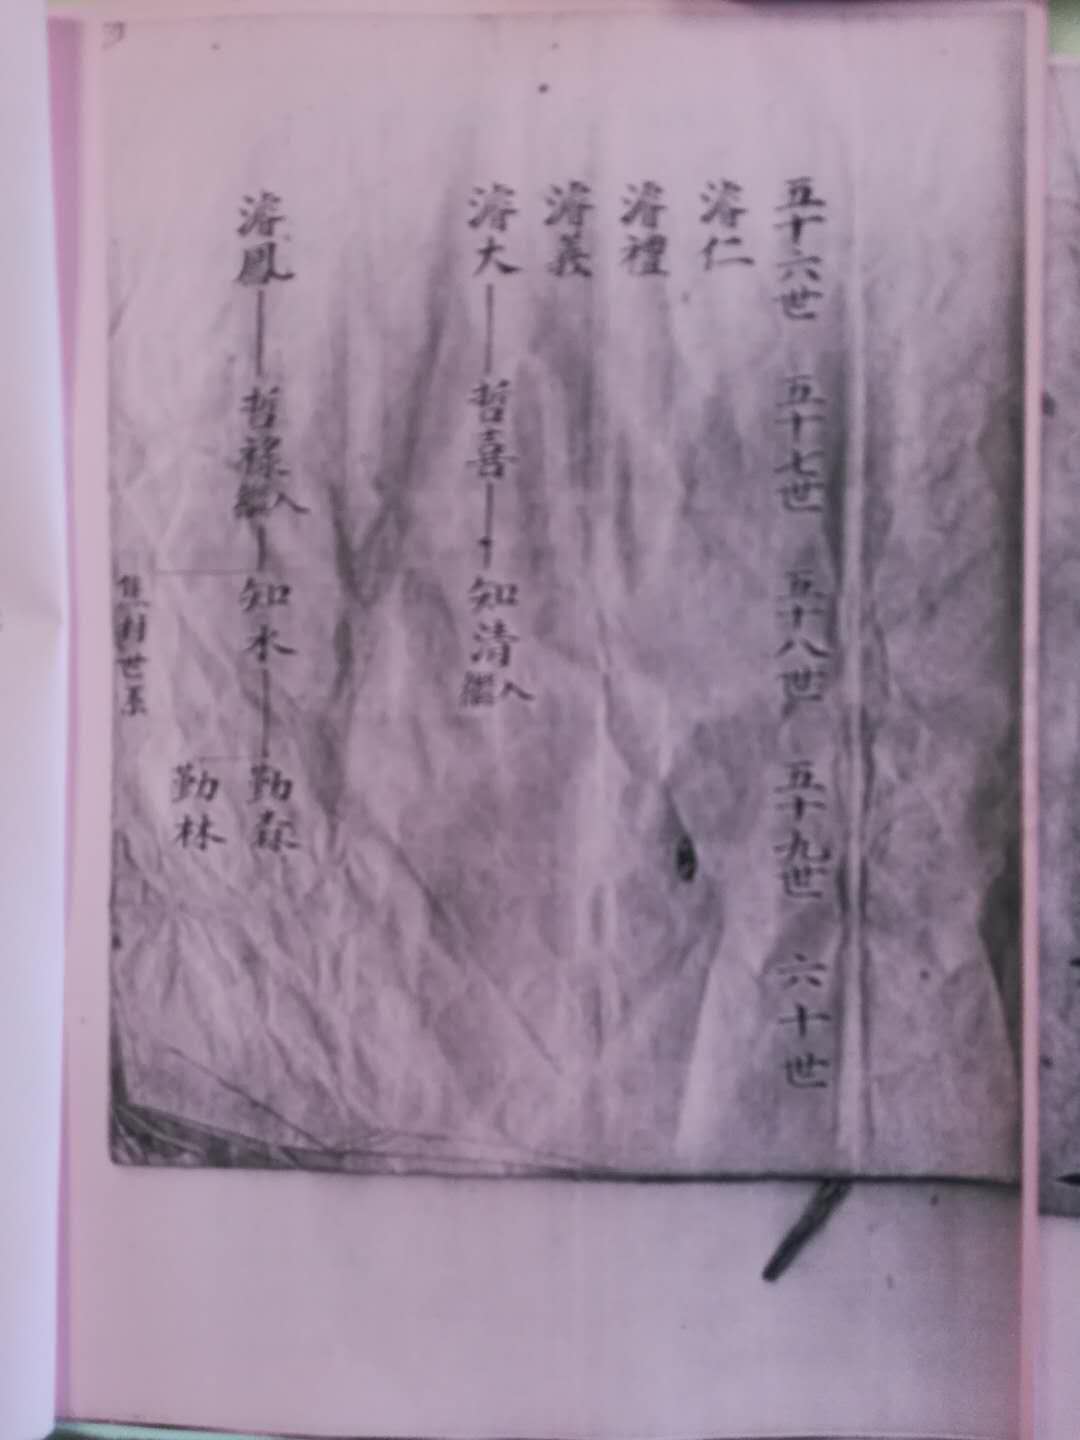 五十六世 五十七世 五十八世 五十九世 六十世
濬仁
濬禮
濬義
濬大 哲喜 知清 入繼
濬鳳 哲祿 入繼 知水 勤森
勤林
世系